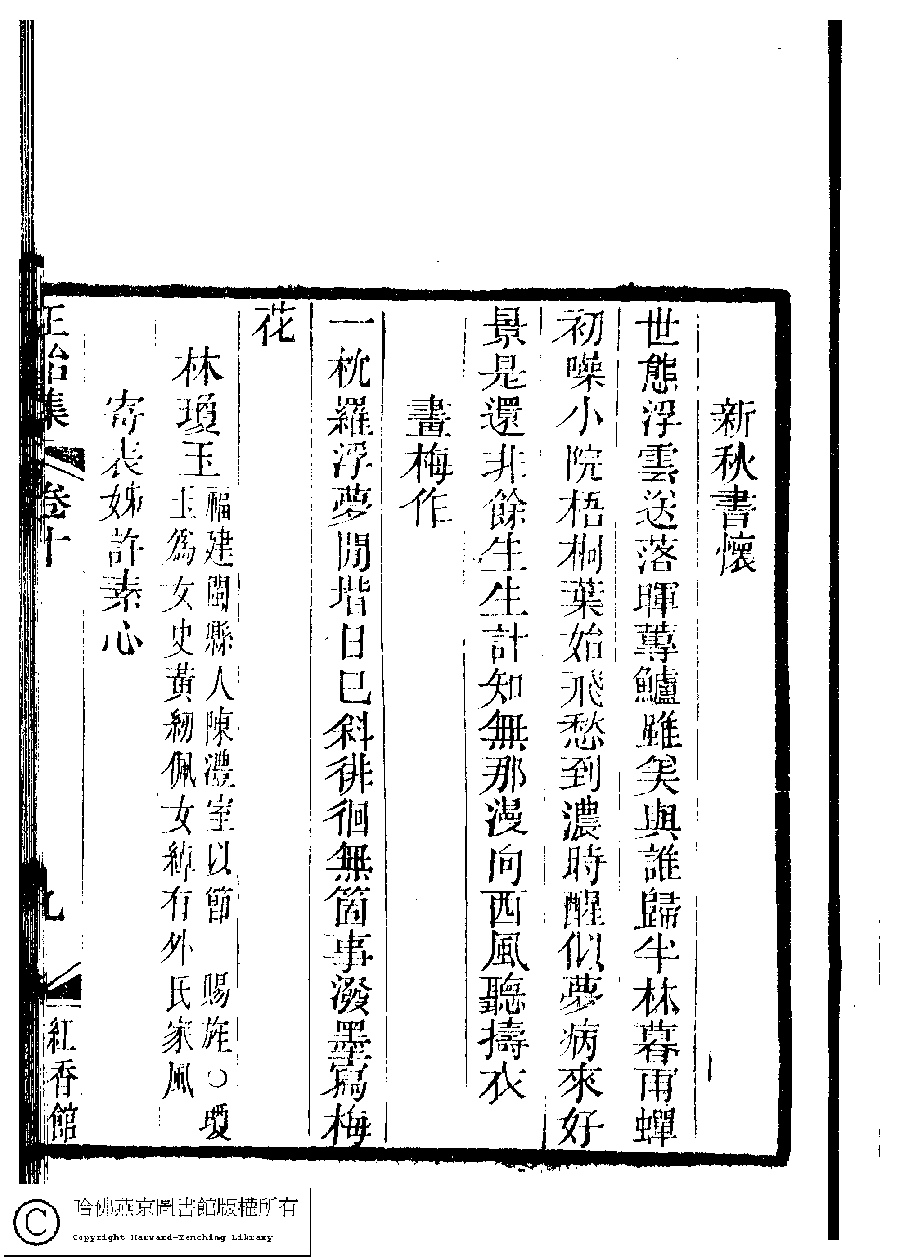 新秋書懷
世態浮雲送落暉蓴鱸雖美與誰歸半林暮雨蟬
初噪小院梧桐葉始飛愁到濃時醒似夢病來好
景是還非餘生生計知無那漫向西風聽擣衣
畫梅作
一枕羅浮夢閒堦日已斜徘徊無箇事潑墨寫梅
花
林瓊玉福建閩縣人陳灃室以節 賜旌○瓊
玉爲女史黃紉佩女綽有外氏家風
寄表姊許素心
正始集 卷十
九
紅香館
哈佛燕京圖書館版權所有
Copyright Harvard-Yenching Library